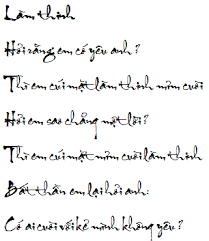 Lặng thinh
Hỏi rằng em có yêu anh?
Thì em cúi mặt làm thinh mỉm cười
Hỏi em sao chẳng một lời?
Thì em cúi mặt mỉm cười làm thinh
Bất thần em lại hỏi anh:
Có ai cười với kẻ mình không yêu?